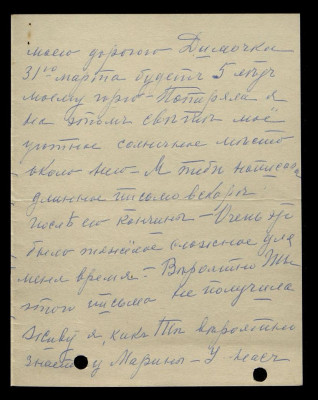 моего дорогого Димочки
31го марта будетъ 5 лѣтъ
моему горю – Потеряла я
на этомъ свѣтѣ моё
уютное солнечное мѣсто
около него – Я тебѣ написала
длинное письмо вскорѣ
послѣ его кончины – Очень
было тяжёлое сложное для
меня время – Вѣроятно Ты
этого письма не получила
Живу я, какъ Ты вѣроятно
знаешь у Марины – У насъ